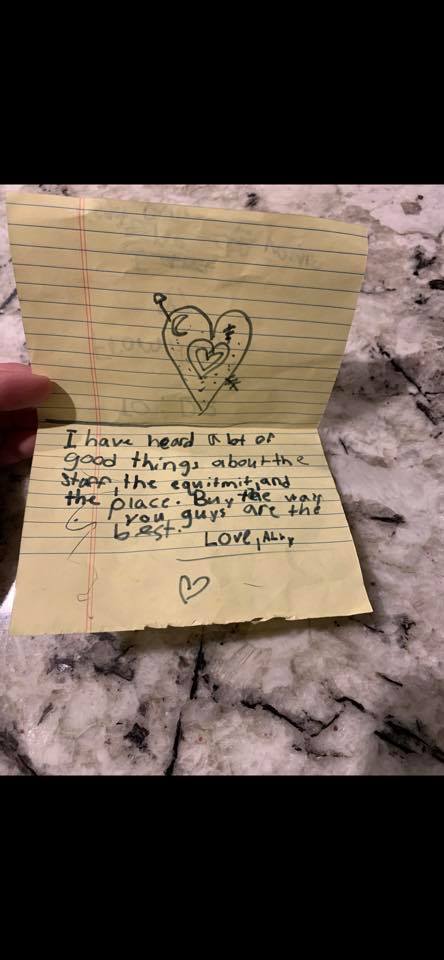 I have heard a lot of
good things about the
staff, the equitmit, and
the place. Buy the way
you guys are the
best.
Love, Abby